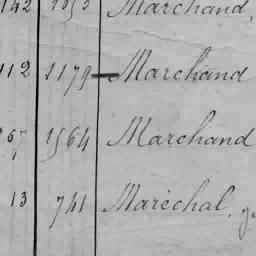 142 1053 Marchand,
112 1179 Marchand
1564 Marchand
13 741 Maréchal,